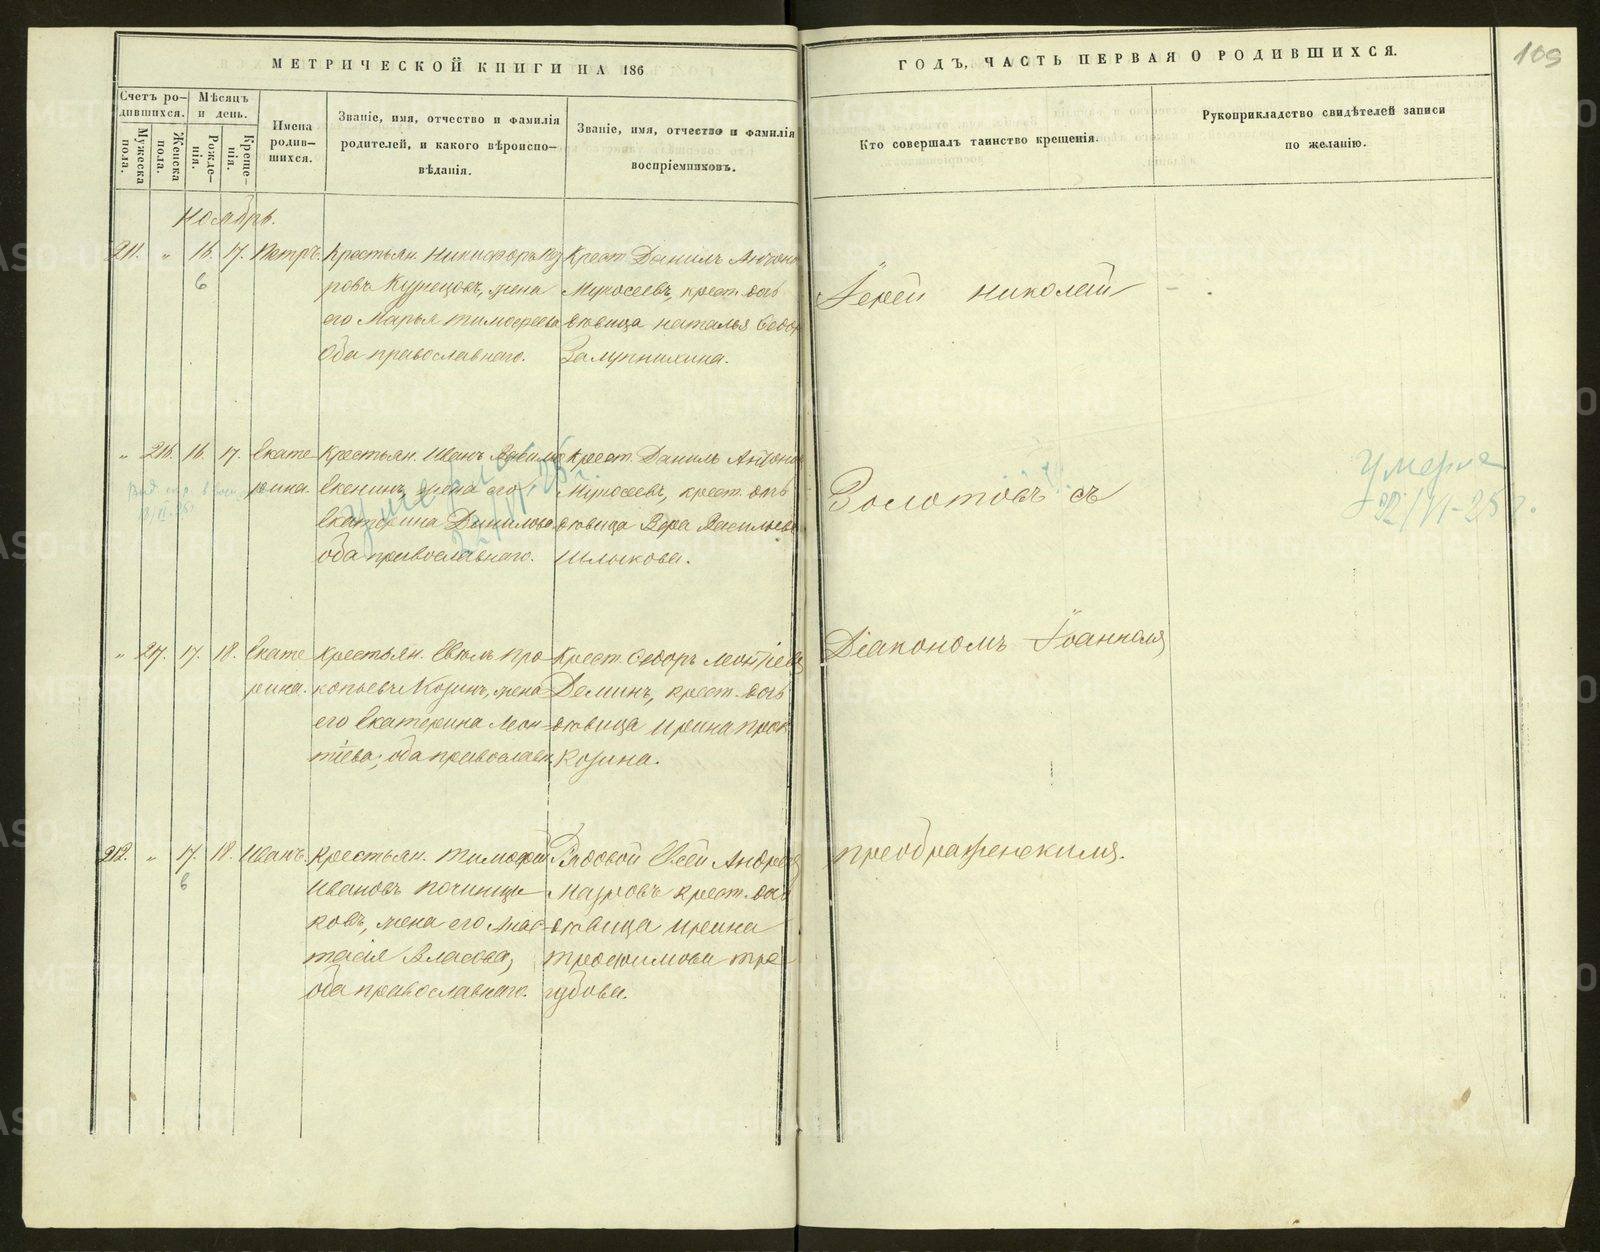 МЕТРИЧЕСКОЙ КНИГИ НА 186
ГОДЪ, ЧАСТЬ ПЕРВАЯ О РОДИВШИХСЯ.
109
Счетъ ро-
дившихся.
Мужеска
пола.
Женска
пола.
Мѣсяцъ
и день.
Рожде-
нія.
Креще-
нія.
Имена
родив-
шихся.
Званіе, имя, отчество и фамилія
родителей, и какого вѣроиспо-
вѣданія.
Званіе, имя, отчество и фамилія
воспріемниковъ.
Кто совершалъ таинство крещенія.
Рукоприкладство свидѣтелей записи
по желанію.
Ноябрь.
211. " 16. 17. Петръ.
6
Крестьян. Никифоръ
ровъ Кузнецовъ, жена
его Марья Тимофеева
Оба православнаго.
Крест. Данилъ Антоно
Мукосеевъ, крест. дѣв
вица Наталья Сидор
" 216. 16. 17. Екате
рина.
Крестьян. Иванъ
жена его
Екатерина Данилова
оба православнаго.
Крест. Данилъ Антоно
Мукосеевъ, крест. дѣв
вица Вера Васильев
Шлыкова.
Умерла
22/VI-25 г.
" 217. 17. 18. Екате
рина.
Крестьян. Про
копьевъ Козинъ, жена
его Екатерина Леон
тіева; оба православн.
Крест. Сидоръ Леонтіев
Деминъ, крест. дѣв
вица Ирина Прок
Козина.
212. " 17. 18. Иванъ.
6
Крестьян. Тимофей
Ивановъ Починщи
ковъ, жена его Анас
тасія Власова,
оба православнаго.
Рядовой Евсей Андреев
Мазуровъ крест. дѣв
вица Ирина
Трофимова Тре
губова.
Іерей Николай
Золотовъ съ
Діакономъ Іоанномъ
Преображенскимъ.
Умерла
22/VI-25 г.
METRIKI.GASO-URAL.RU